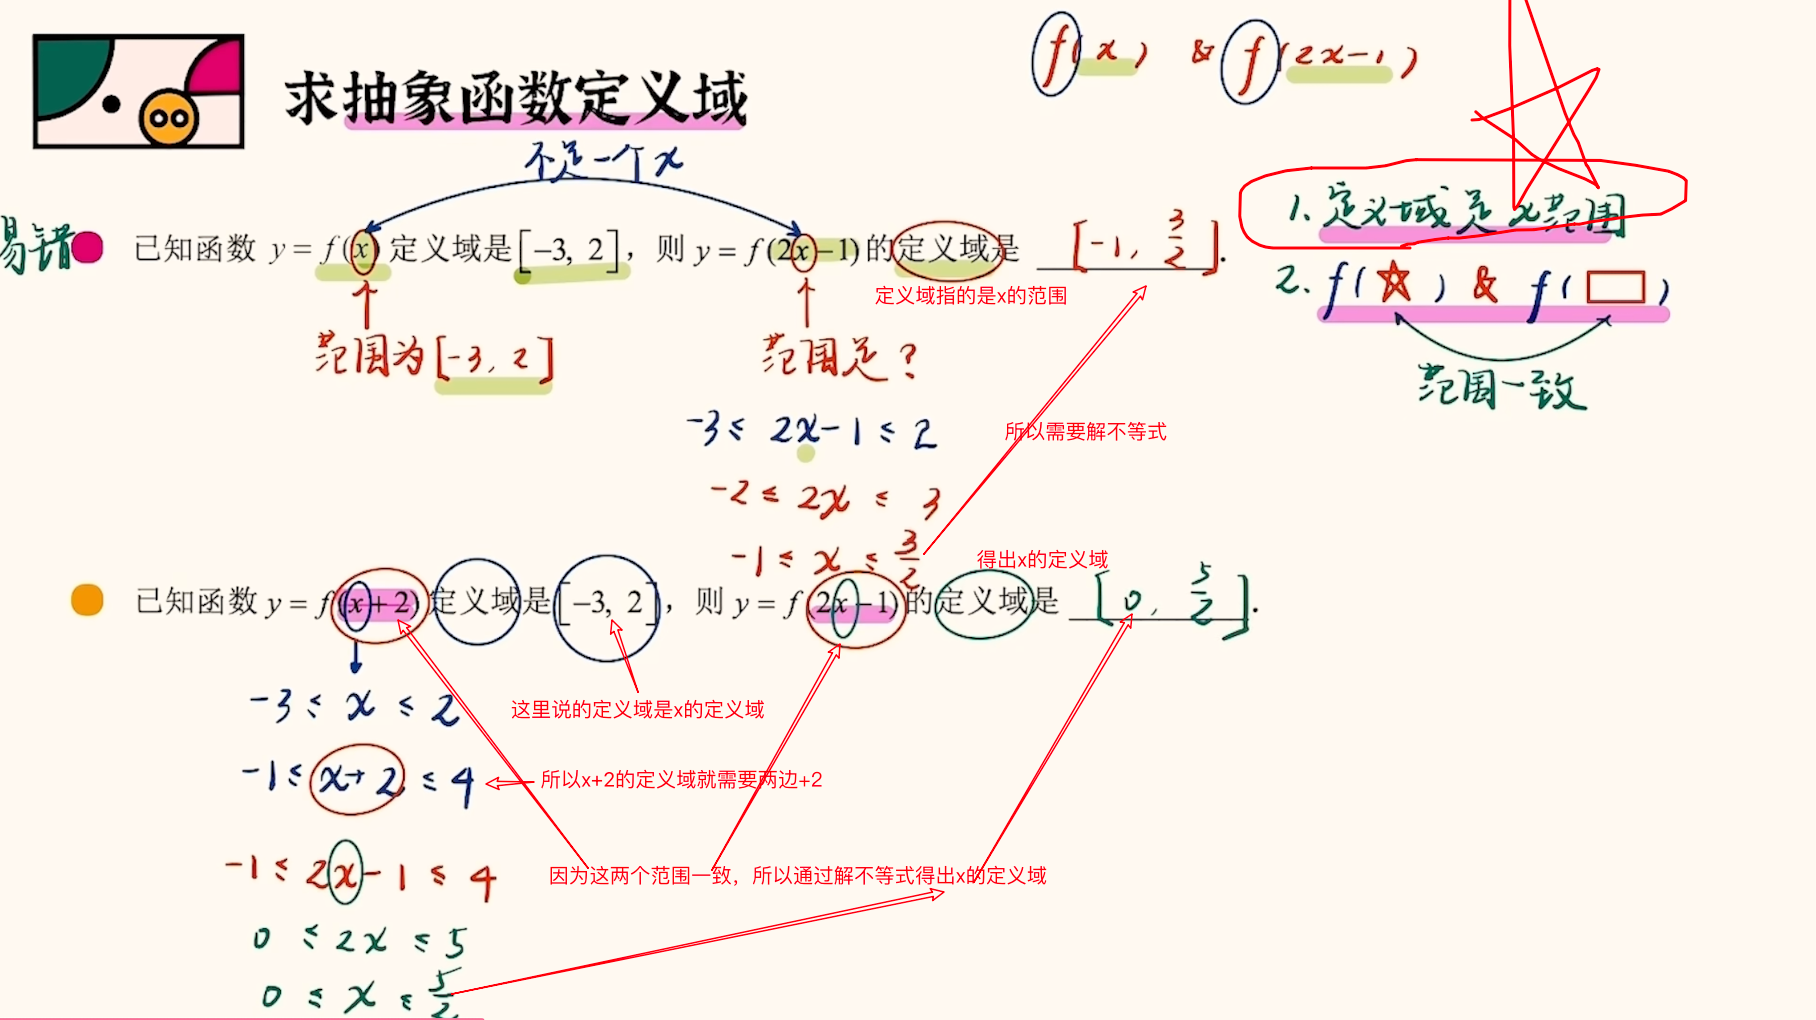 f(x) & f(2x-1)
求抽象函数定义域
不是一个x
1. 定义域是x范围
易错 已知函数 y = f(x) 定义域是[-3, 2]，则 y = f(2x-1)的定义域是 [-1, 3/2].
定义域指的是x的范围
2. f(☆) & f(□)
范围为[-3, 2]
范围是?
范围一致
-3 ≤ 2x-1 ≤ 2
所以需要解不等式
-2 ≤ 2x ≤ 3
-1 ≤ x ≤ 3/2
得出x的定义域
已知函数 y = f(x+2) 定义域是[-3, 2]，则 y = f(2x-1)的定义域是 [0, 5/2].
-3 ≤ x ≤ 2
这里说的定义域是x的定义域
-1 ≤ x+2 ≤ 4
所以x+2的定义域就需要两边+2
-1 ≤ 2x-1 ≤ 4
因为这两个范围一致，所以通过解不等式得出x的定义域
0 ≤ 2x ≤ 5
0 ≤ x ≤ 5/2